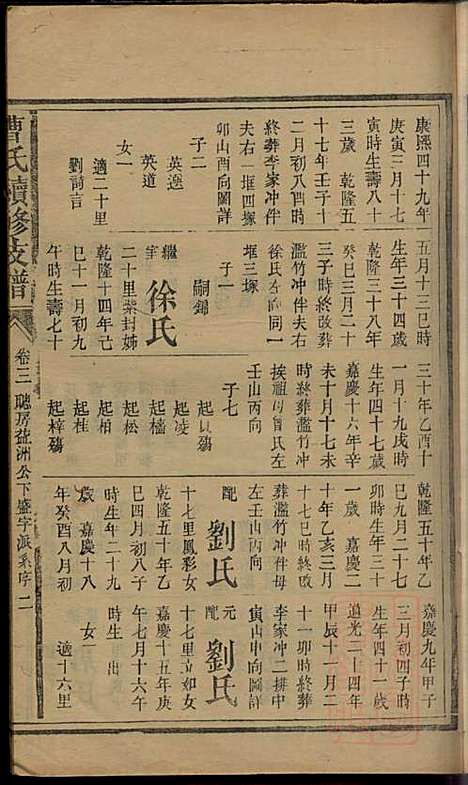 康熙四十九年
庚寅三月十七
寅時生壽八十
三歲 乾隆五
十七年壬子十
二月初八酉時
終葬李家冲伴
夫右一堆四塚
卯山酉向圖詳
子二
英逵
英道
女一
適二十里
劉謌言
五月十三巳時
生年三十四歲
乾隆三十八年
癸巳三月二十
三子時終改葬
濫竹冲伴夫右
徐氏左向同一
堆三塚
子一
嗣錦
繼室 徐氏
二十里紫封姊
乾隆十四年己
巳十一月初九
午時生壽七十
三十年乙酉十
一月十九戌時
生年四十七歲
嘉慶十六年辛
未十月十七未
時終葬濫竹冲
挨祖母曾氏左
壬山丙向
子七
起 殤
起凌
起檣
起松
起柏
起桂
起梓殤
乾隆五十年乙
巳九月二十七
卯時生年三十
一歲 嘉慶二
十年乙亥三月
十七巳時終
葬濫竹冲伴母
左壬山丙向
配 劉氏
十七里鳳彩女
乾隆五十年乙
巳四月初八子
時生年二十九
歲 嘉慶十八
年癸酉八月初
嘉慶九年甲子
三月初四子時
生年四十一歲
道光二十四年
甲辰十一月二
十一卯時終葬
李家冲二排中
寅山申向圖詳
元配 劉氏
十七里立如女
嘉慶十五年庚
午七月十六午
時生 出
女一
適十六里
曹氏續修支譜 卷三 聽房益洲公下盛字派系序 二